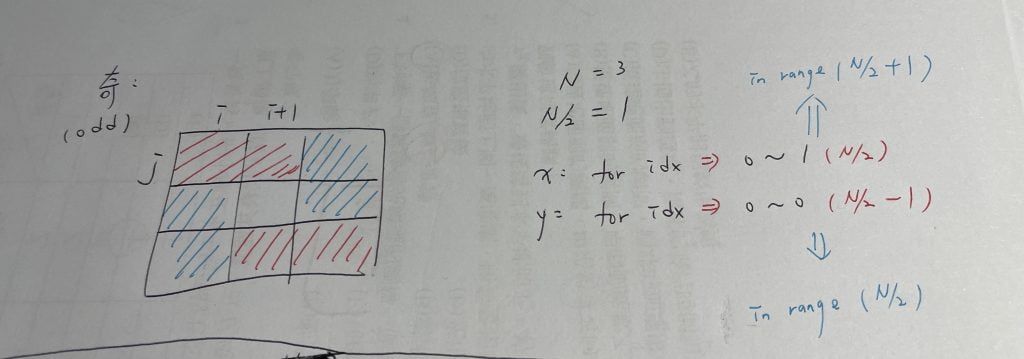 奇:
(odd)
i i+1
j
N = 3
N/2 = 1
in range (N/2+1)
x: for idx ⇒ 0 ~ 1 (N/2)
y= for idx ⇒ 0 ~ 0 (N/2 - 1)
in range (N/2)